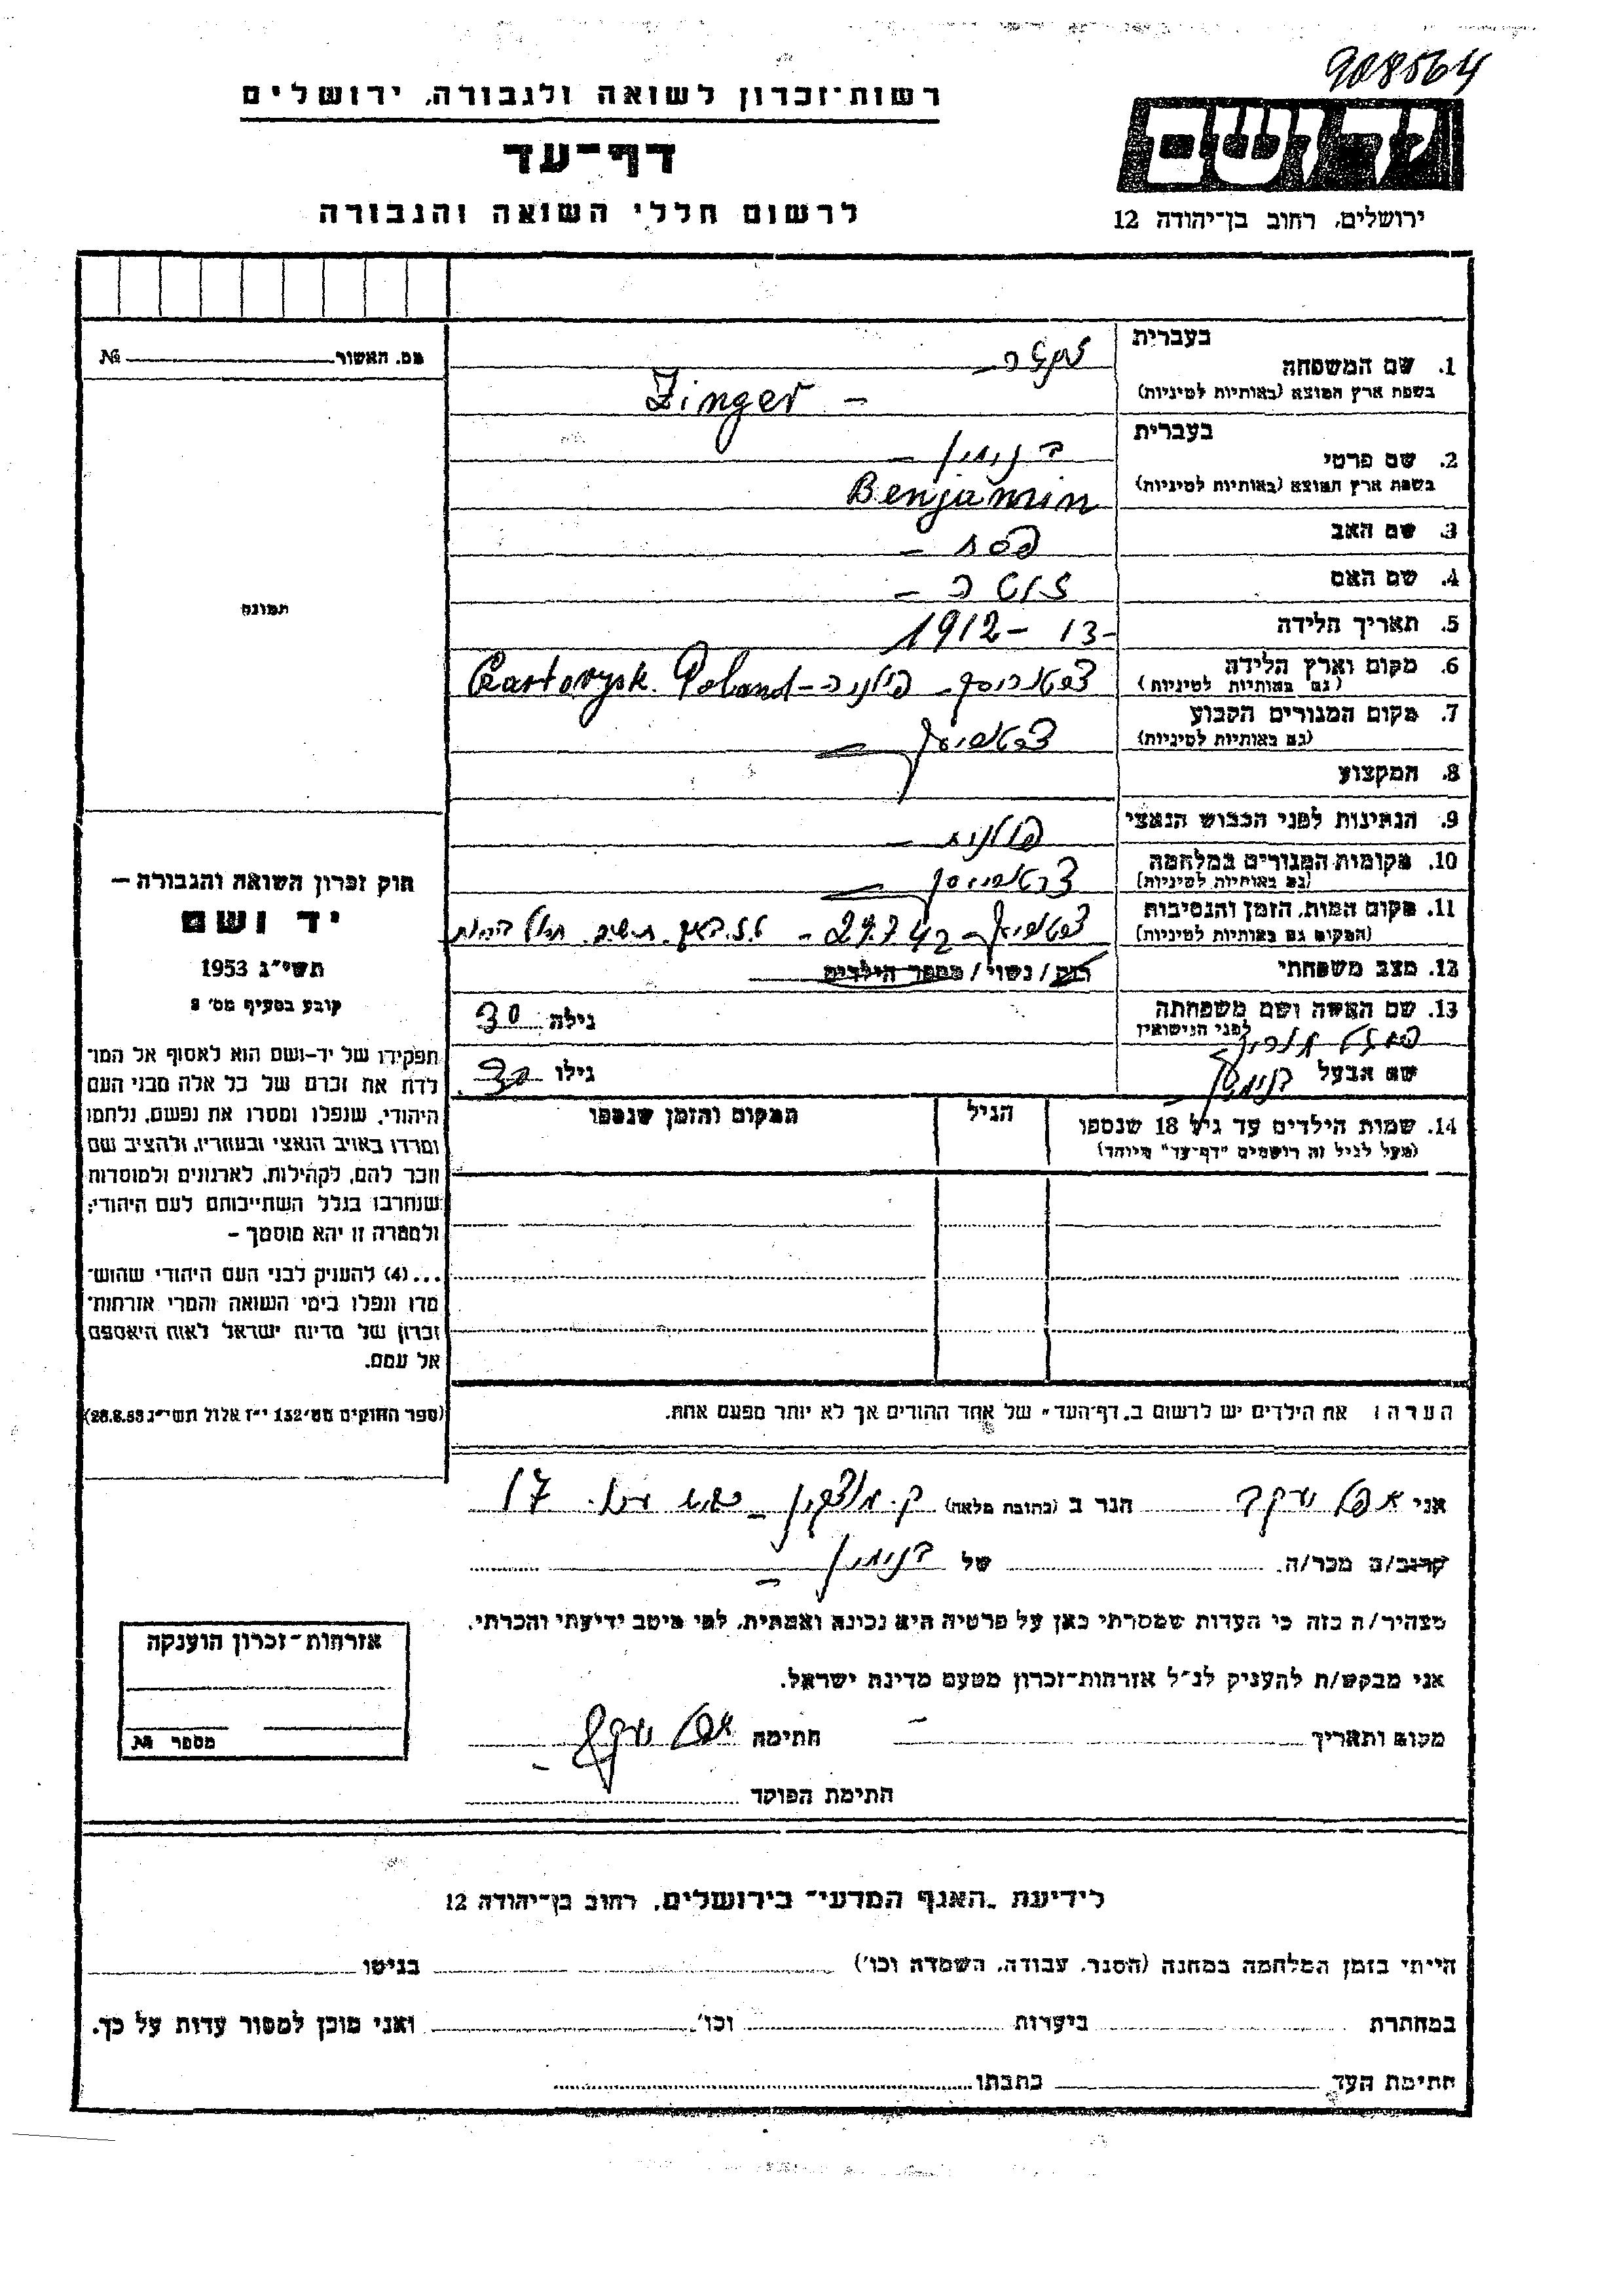 908564
רשות-זכרון לשואה ולגבורה, ירושלים
דף-עד
לרשום חללי השואה והגבורה
יד ושם
ירושלים, רחוב בן-יהודה 12
מס. האשור № 
תמונה
בעברית
1. שם המשפחה
(בשפת ארץ המוצא (באותיות לטיניות
Zinger –
בעברית
2. שם פרטי בנימין –
בשפת ארץ המוצא (באותיות לטיניות) Benjamin
3. שם האב פסח –
4. שם האם
5. תאריך הלידה 1912 – 13-
6. מקום וארץ הלידה
(גם באותיות לטיניות) פולניה – Czartorysk. Poland
7. מקום המגורים הקבוע
(גם באותיות לטיניות)
8. המקצוע
9. הנתינות לפני הכבוש הנאצי פולנית –
10. מקומות המגורים במלחמה
(גם באותיות לטיניות)
11. מקום המות, הזמן והנסיבות
(המקום גם באותיות לטיניות) 29.7 42 –
12. מצב משפחתי רווק / נשוי / מספר הילדים
13. שם האשה ושם משפחתה
לפני הנישואין
גילה 30
שם הבעל בנימין גילו 30
14. שמות הילדים עד גיל 18 שנספו
(מעל לגיל זה רושמים "דף-עד" מיוחד)
הגיל
המקום והזמן שנספו
חוק זכרון השואה והגבורה –
יד ושם
תשי"ג 1953
קובע בסעיף מס' 2
תפקידו של יד-ושם הוא לאסוף אל המו־
לדת את זכרם של כל אלה מבני העם
היהודי, שנפלו ומסרו את נפשם, נלחמו
ומרדו באויב הנאצי ובעוזריו, ולהציב שם
וזכר להם, לקהילות, לארגונים ולמוסדות
שנחרבו בגלל השתייכותם לעם היהודי;
ולמטרה זו יהא מוסמך –
...(4) להעניק לבני העם היהודי שהוש־
מדו ונפלו בימי השואה והמרי אזרחות־
זכרון של מדינת ישראל לאות היאספם
אל עמם.
(ספר החוקים מס' 132 י"ז אלול תשי"ג 28.8.53)
הערה: את הילדים יש לרשום ב"דף-העד" של אחד ההורים אך לא יותר מפעם אחת.
אני יעקב הגר ב (כתובת מלאה) ק. מוצקין 17
קרוב/ה מכר/ה של בנימין –
מצהיר/ה בזה כי העדות שמסרתי כאן על פרטיה היא נכונה ואמתית, לפי מיטב ידיעתי והכרתי.
אני מבקש/ת להעניק לנ"ל אזרחות-זכרון מטעם מדינת ישראל.
מקום ותאריך – חתימה יעקב –
חתימת הפוקד
אזרחות-זכרון הוענקה
מספר №
לידיעת "האגף המדעי" בירושלים, רחוב בן-יהודה 12
הייתי בזמן המלחמה במחנה (הסגר, עבודה, השמדה וכו') בגיטו
במחתרת ביערות וכו' ואני מוכן למסור עדות על כך.
חתימת העד כתבתו